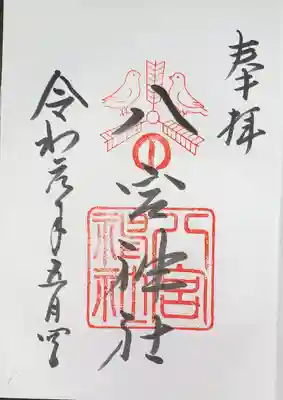 奉拝
八宮神社
八宮神社
令和元年五月四日